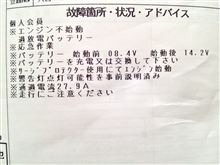 故障箇所・状況・アドバイス
個人会員
※エンジン不始動
過放電バッテリー
※応急作業
※バッテリー 始動前 08.4V 始動後 14.2V
※バッテリーを充電又は交換して下さい
※サージプロテクター使用にてエンジン始動
※警告灯点灯可能性を事前説明済み
※通過電流27.9A
※走行にご注意ください